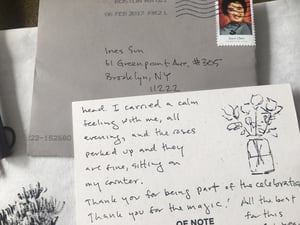 06 FEB 2017 PM 2 L
Ines Sun
61 Greenpoint Ave, #305
Brooklyn, NY
11222
head. I carried a calm
feeling with me, all
evening, and the roses
perked up and they
are fine, sitting on
my counter.
Thank you for being part of the celebration
Thank you for the magic! All the best
for this
OF NOTE